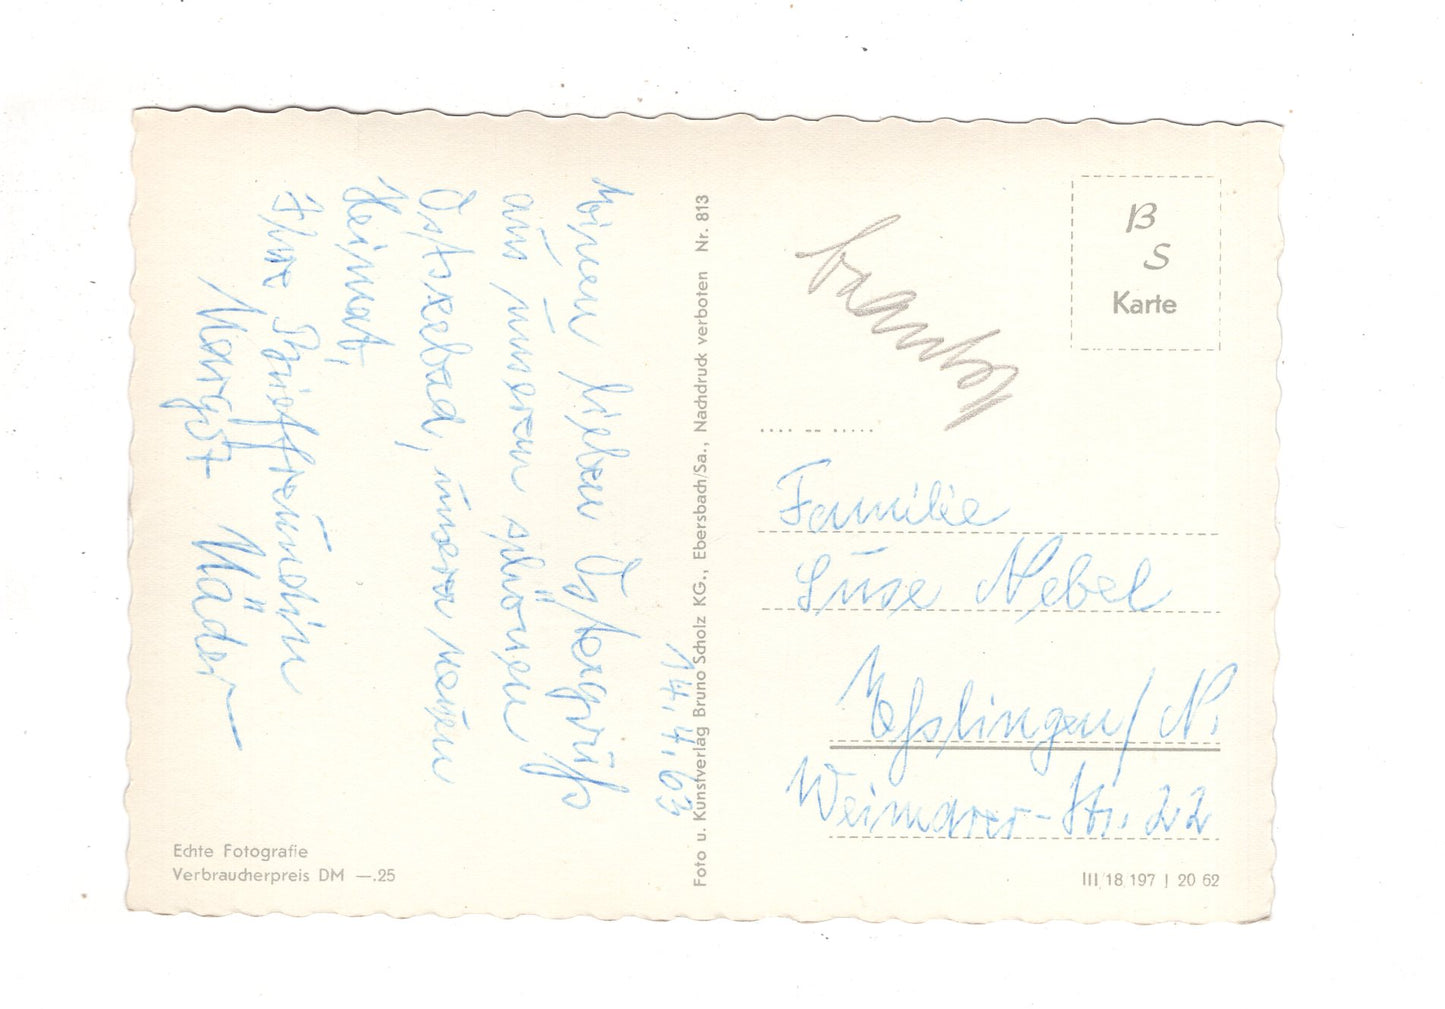 14.4.63
Einen lieben Ostergruß
aus unserem schönen
Ostseebad, unsere neuen
Heimat,
Ihre Brieffreundin
Margot Mäder
Foto u. Kunstverlag Bruno Scholz KG., Ebersbach/Sa., Nachdruck verboten Nr. 813
B
S
Karte
Familie
Suse Nebel
Eßlingen/N.
Weimarer-Str. 22
Echte Fotografie
Verbraucherpreis DM —.25
III 18 197 J 20 62